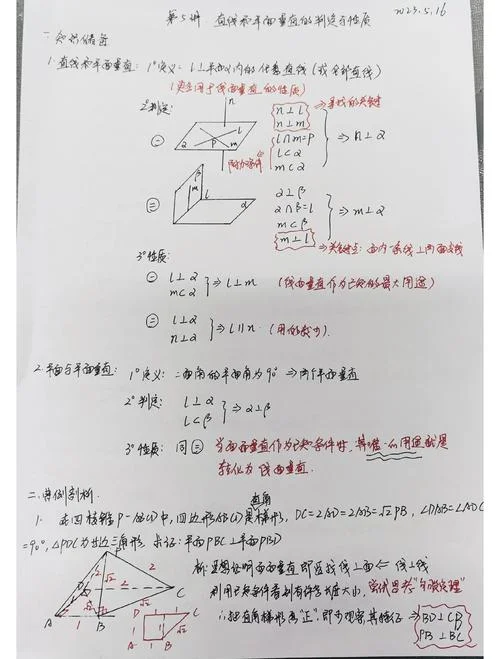 第5讲 直线和平面垂直的判定与性质
2023.5.16
一. 知识储备
1. 直线和平面垂直: 1°定义: l⊥平面α内的任意直线(或全部直线)
(更多用于线面垂直的性质)
2°判定:
㊀
n
α P l m
附加条件
n⊥l
n⊥m
l∩m=P
l⊂α
m⊂α
⇒ n⊥α
⇒寻找的关键
㊁
β m l α
α⊥β
α∩β=l
m⊂β
m⊥l
⇒ m⊥α
⇒关键在: 面内一条线⊥两面交线
3°性质:
㊀ l⊥α
m⊂α
⇒ l⊥m (线面垂直作为已知的最大用途)
㊁ l⊥α
n⊥α
⇒ l∥n (用的较少).
2. 平面与平面垂直: 1°定义: 二面角的平面角为90° ⇒两个平面垂直
2°判定: l⊥α
l⊂β
⇒α⊥β
3°性质: 同㊁ 当面面垂直作为已知条件时, 其唯一的用途就是
转化为线面垂直.
二. 典例剖析.
直角
1. 在四棱锥P-ABCD中, 四边形ABCD是梯形, DC=2AD=2AB=√2PB, ∠DAB=∠ADC
=90°, △PDC为等边三角形. 求证: 平面PBC⊥平面PBD
析: 要想证明面面垂直 即寻找线⊥面 ⇐ 线⊥线
利用已知条件看到有许多长度大小, 应优先思考"勾股定理"
∴把直角梯形画"正", 即可观察其特征 ⇒
BD⊥CB
PB⊥BC
P
2 2 2
D C
√2 √2
A 1 B
D 2 C
1 √2 √2
A 1 B